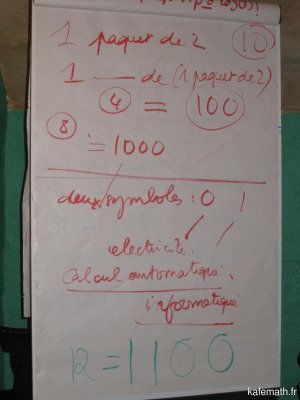 1 paquet de 2 10
1 — de (1 paquet de 2)
4 = 100
8 = 1000
deux symboles : 0 1
electricité.
Calcul automatique.
informatique
12 = 1100
kafemath.fr